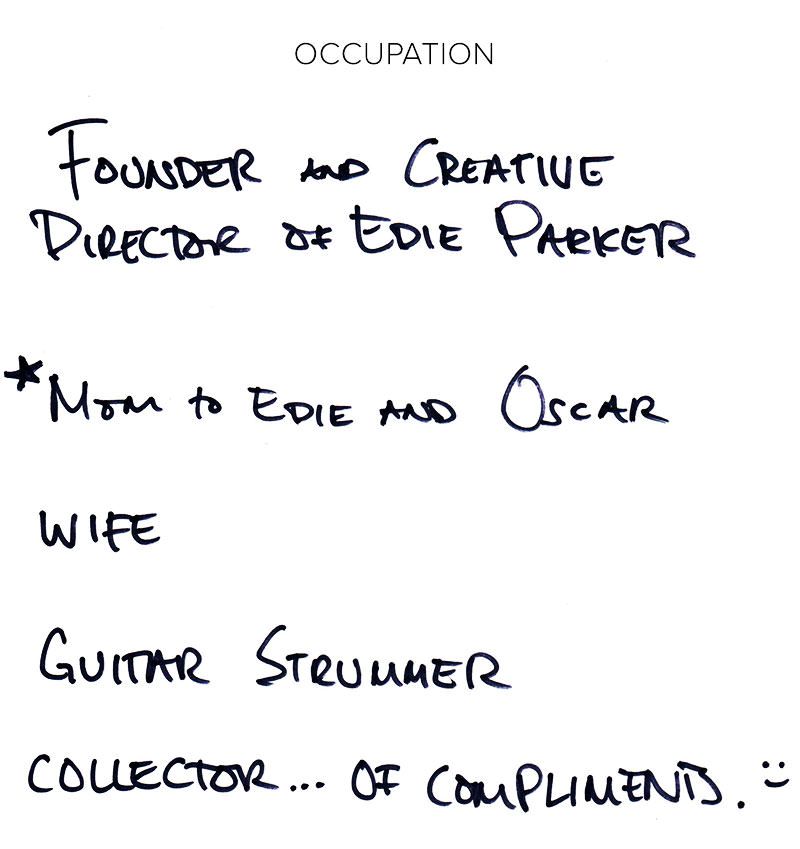 OCCUPATION
FOUNDER AND CREATIVE
DIRECTOR OF EDIE PARKER
*MOM to EDIE AND OSCAR
WIFE
GUITAR STRUMMER
COLLECTOR... OF COMPLIMENTS. :)